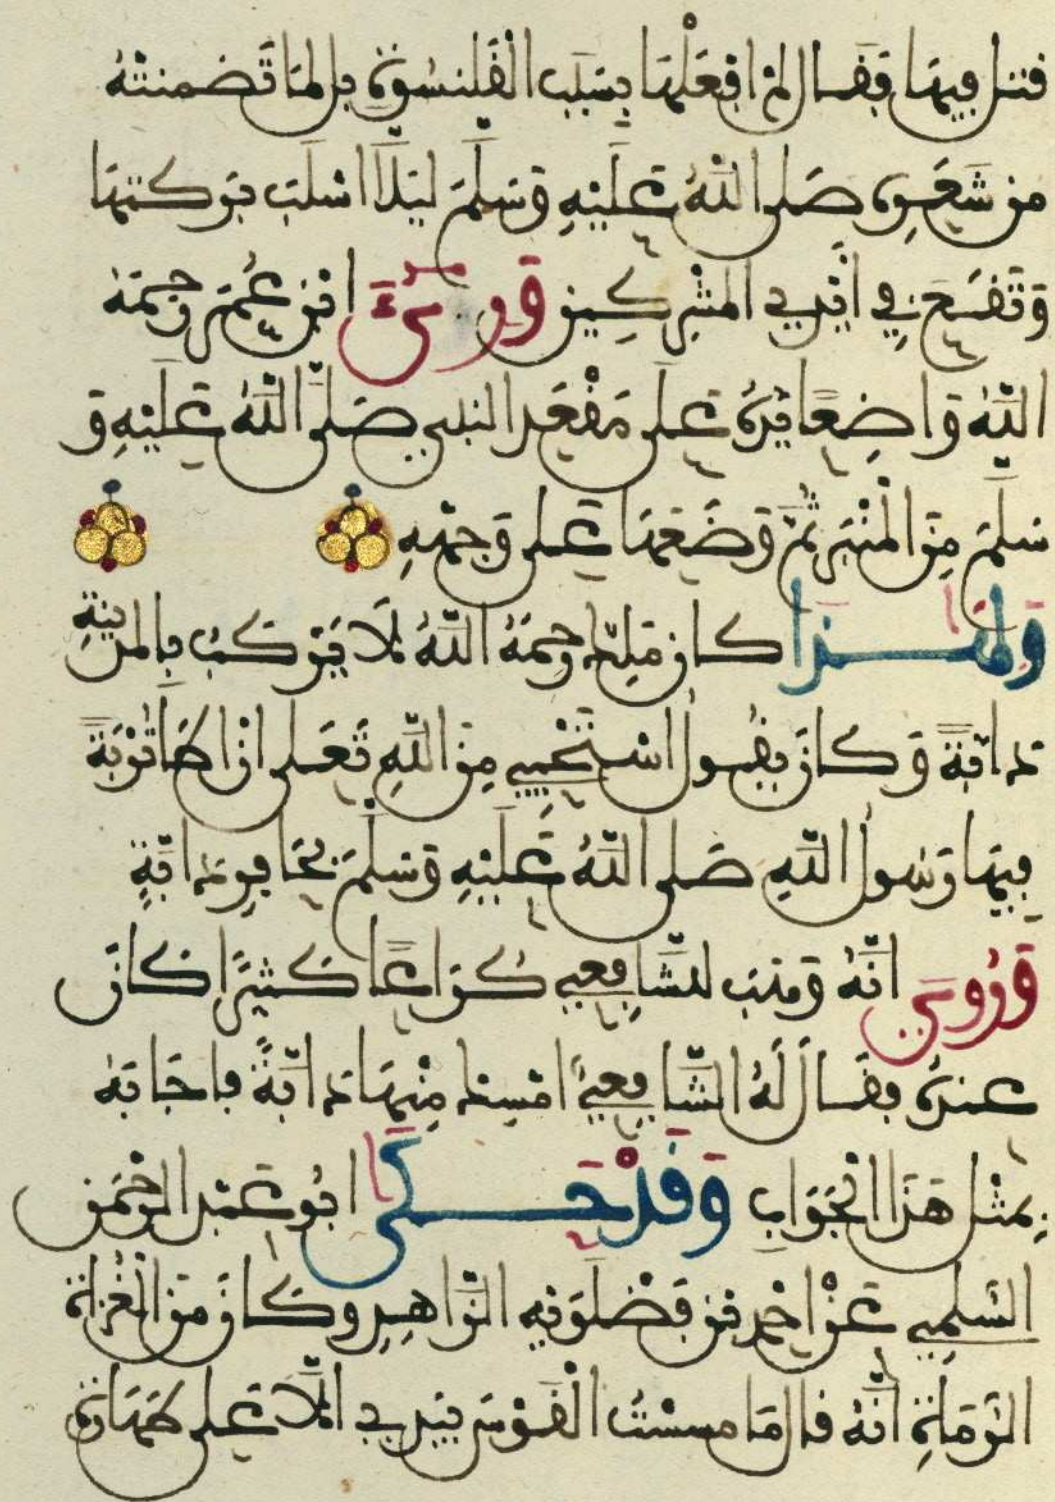 قتل فيها فقال لم افعلها بسبب القلنسوة بل لما تضمنته
من شعره صلى الله عليه وسلم ليلا اسلب بركتها
وتقع في أيدي المشركين ورىء ابن عمر رحمه
الله واضعا يده على مقعد النبي صلى الله عليه و
سلم من المنبر ثم وضعها على وجهه
ولهذا كان ملك رحمه الله لا يركب بالمدينة
دابة وكان يقول استحيي من الله تعلى ان اطأ تربة
فيها رسول الله صلى الله عليه وسلم بحافر دابة
وروي أنه وهب للشافعي كراعا كثيرا كان
عنده فقال له الشافعي امسك منها دابة فاجابه
بمثل هذا الجواب وقد حكى ابو عبد الرحمن
السلمي عن احمد بن فضلويه الزاهد وكان من الغزاة
الرماة أنه قال ما مسست القوس بيدي الا على طهارة